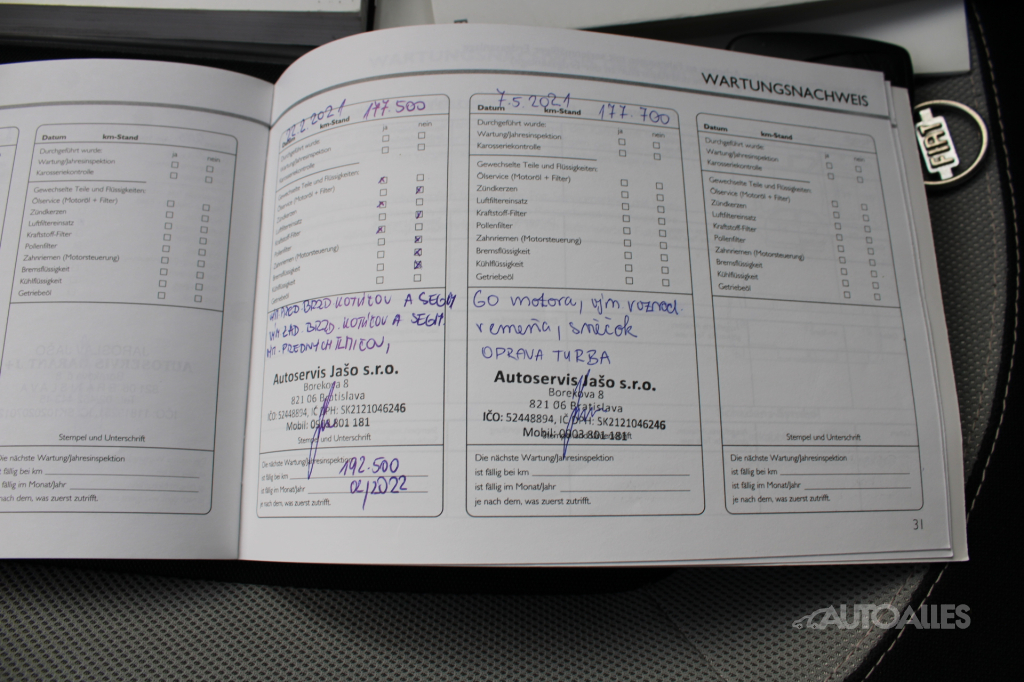 WARTUNGSNACHWEIS
Datum km-Stand
Durchgeführt wurde: ja nein
Wartung/Jahresinspektion
Karosseriekontrolle
Gewechselte Teile und Flüssigkeiten:
Ölservice (Motoröl + Filter)
Zündkerzen
Luftfiltereinsatz
Kraftstoff-Filter
Pollenfilter
Zahnriemen (Motorsteuerung)
Bremsflüssigkeit
Kühlflüssigkeit
Getriebeöl
Stempel und Unterschrift
Die nächste Wartung/Jahresinspektion
ist fällig bei km
ist fällig im Monat/Jahr
je nach dem, was zuerst zutrifft.
22 2 2021 177 500
km-Stand
Durchgeführt wurde: ja nein
Wartung/Jahresinspektion
Karosseriekontrolle
Gewechselte Teile und Flüssigkeiten:
Ölservice (Motoröl + Filter)
Zündkerzen
Luftfiltereinsatz
Kraftstoff-Filter
Pollenfilter
Zahnriemen (Motorsteuerung)
Bremsflüssigkeit
Kühlflüssigkeit
Getriebeöl
PRED BRZD KOTÚČOV A SEGM
ZAD. BRZD. KOTÚČOV A SEGM.
PREDNÝCH TLMIČOV,
Autoservis Jašo s.r.o.
Borekova 8
821 06 Bratislava
IČO: 52448894, IČ DPH: SK2121046246
Mobil: 0903 801 181
Stempel und Unterschrift
Die nächste Wartung/Jahresinspektion
ist fällig bei km 192.500
ist fällig im Monat/Jahr 02/2022
je nach dem, was zuerst zutrifft.
7.5 2021 177. 700
Datum km-Stand
Durchgeführt wurde: ja nein
Wartung/Jahresinspektion
Karosseriekontrolle
Gewechselte Teile und Flüssigkeiten:
Ölservice (Motoröl + Filter)
Zündkerzen
Luftfiltereinsatz
Kraftstoff-Filter
Pollenfilter
Zahnriemen (Motorsteuerung)
Bremsflüssigkeit
Kühlflüssigkeit
Getriebeöl
GO motora, vým rozvod.
remeňa, sviečok
OPRAVA TURBA
Autoservis Jašo s.r.o.
Borekova 8
821 06 Bratislava
IČO: 52448894, IČ DPH: SK2121046246
Mobil: 0903 801 181
Die nächste Wartung/Jahresinspektion
ist fällig bei km
ist fällig im Monat/Jahr
je nach dem, was zuerst zutrifft.
Datum km-Stand
Durchgeführt wurde: ja nein
Wartung/Jahresinspektion
Karosseriekontrolle
Gewechselte Teile und Flüssigkeiten:
Ölservice (Motoröl + Filter)
Zündkerzen
Luftfiltereinsatz
Kraftstoff-Filter
Pollenfilter
Zahnriemen (Motorsteuerung)
Bremsflüssigkeit
Kühlflüssigkeit
Getriebeöl
Stempel und Unterschrift
Die nächste Wartung/Jahresinspektion
ist fällig bei km
ist fällig im Monat/Jahr
je nach dem, was zuerst zutrifft.
31
AUTOALLES